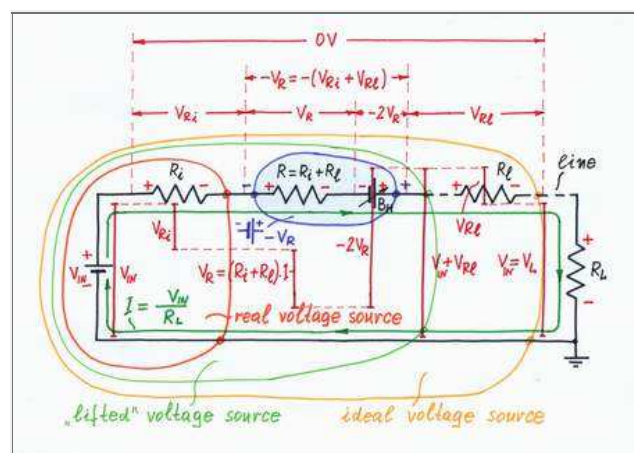 0V
-V_R = -(V_Ri + V_Rl)
V_Ri V_R -2V_R V_Rl
R_i R = R_i + R_l R_l line
+ - + - + - - + + -
B_H
V_IN V_IN V_Ri - + -V_R -2V_R V_IN + V_Rl V_Rl V_IN = V_L R_L
V_R = (R_i + R_l).I
I = V_IN / R_L
real voltage source
„lifted" voltage source ideal voltage source